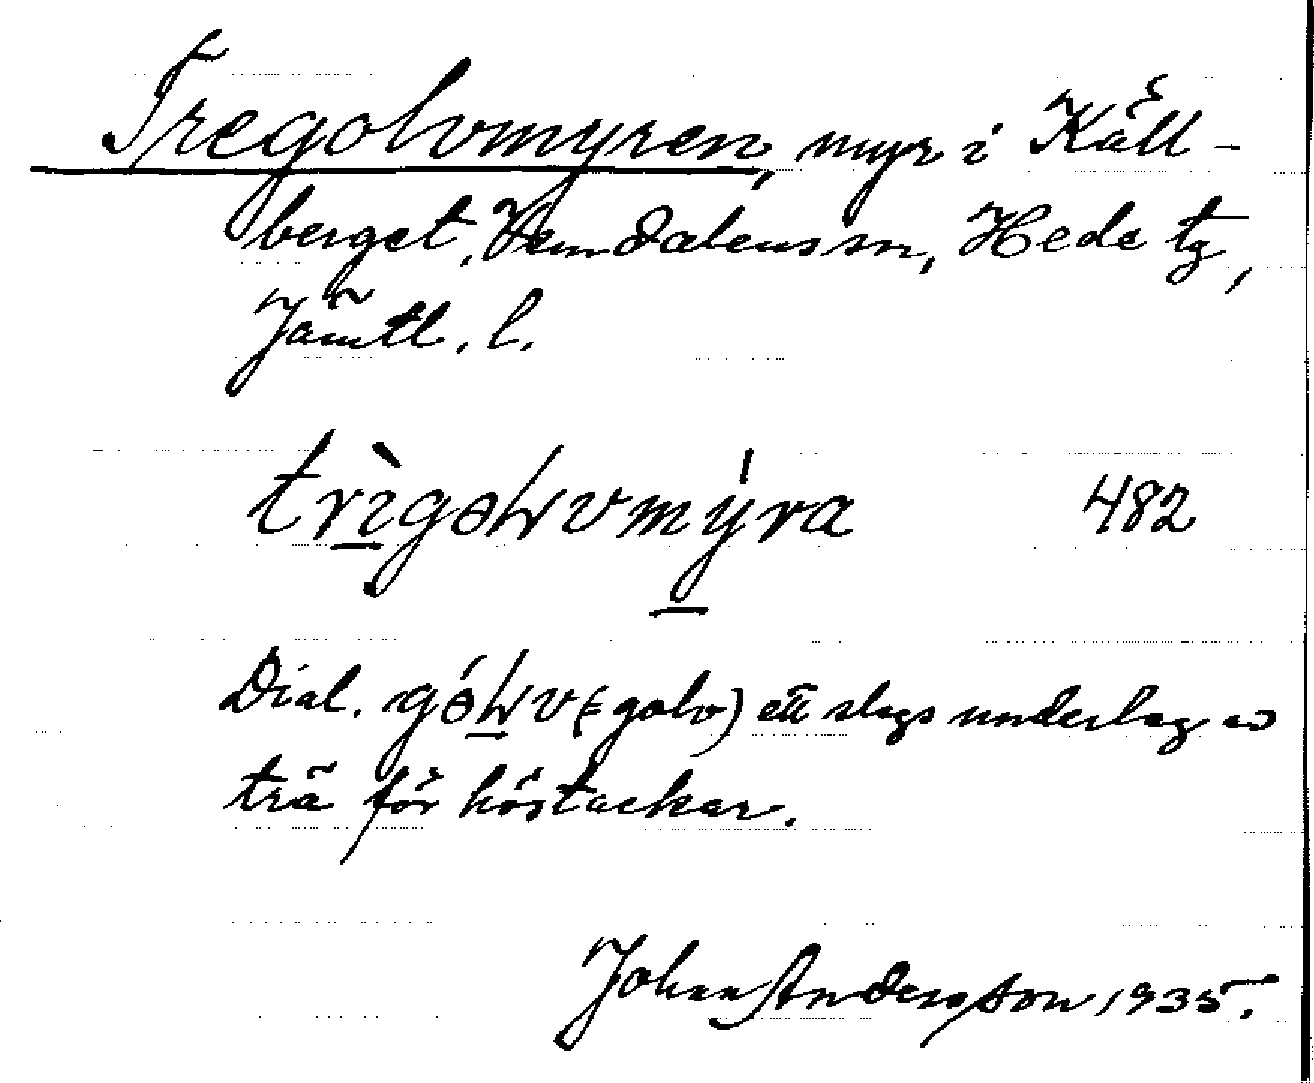 Tregolvmyren, myr i Käll-
berget, Vemdalens sn, Hede tg,
Jämtl. l.
trìgəƚvmýra 482
Dial. gə́ƚv (= golv) ett slags underlag av
trä för höstackar.
Johan Andersson 1935.